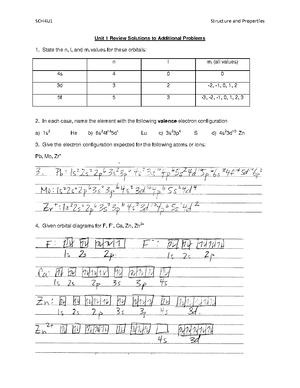 SCH4U1 Structure and Properties
Unit 1 Review Solutions to Additional Problems
1. State the n, l, and ml values for these orbitals:
n l ml (all values)
4s 4 0 0
3d 3 2 -2, -1, 0, 1, 2
5f 5 3 -3, -2, -1, 0, 1, 2, 3
2. In each case, name the element with the following valence electron configuration
a) 1s² He b) 6s²4f¹⁴5d¹ Lu c) 3s²3p⁴ S d) 4s²3d¹⁰ Zn
3. Give the electron configuration expected for the following atoms or ions:
Pb, Mo, Zr⁺
3. Pb: 1s²2s²2p⁶3s²3p⁶4s²3d¹⁰4p⁶5s²4d¹⁰5p⁶6s²4f¹⁴5d¹⁰6p²
Mo: 1s²2s²2p⁶3s²3p⁶4s²3d¹⁰4p⁶5s 4d
Zr⁺: 1s²2s²2p⁶3s²3p⁶4s²3d¹⁰4p⁶5s 4d
4. Given orbital diagrams for F, F⁻, Ca, Zn, Zn²⁺
F: F⁻:
1s 2s 2p 1s 2s 2p
Ca:
1s 2s 2p 3s 3p 4s
Zn:
1s 2s 2p 3s 3p 4s 3d
Zn²⁺
4s 3d